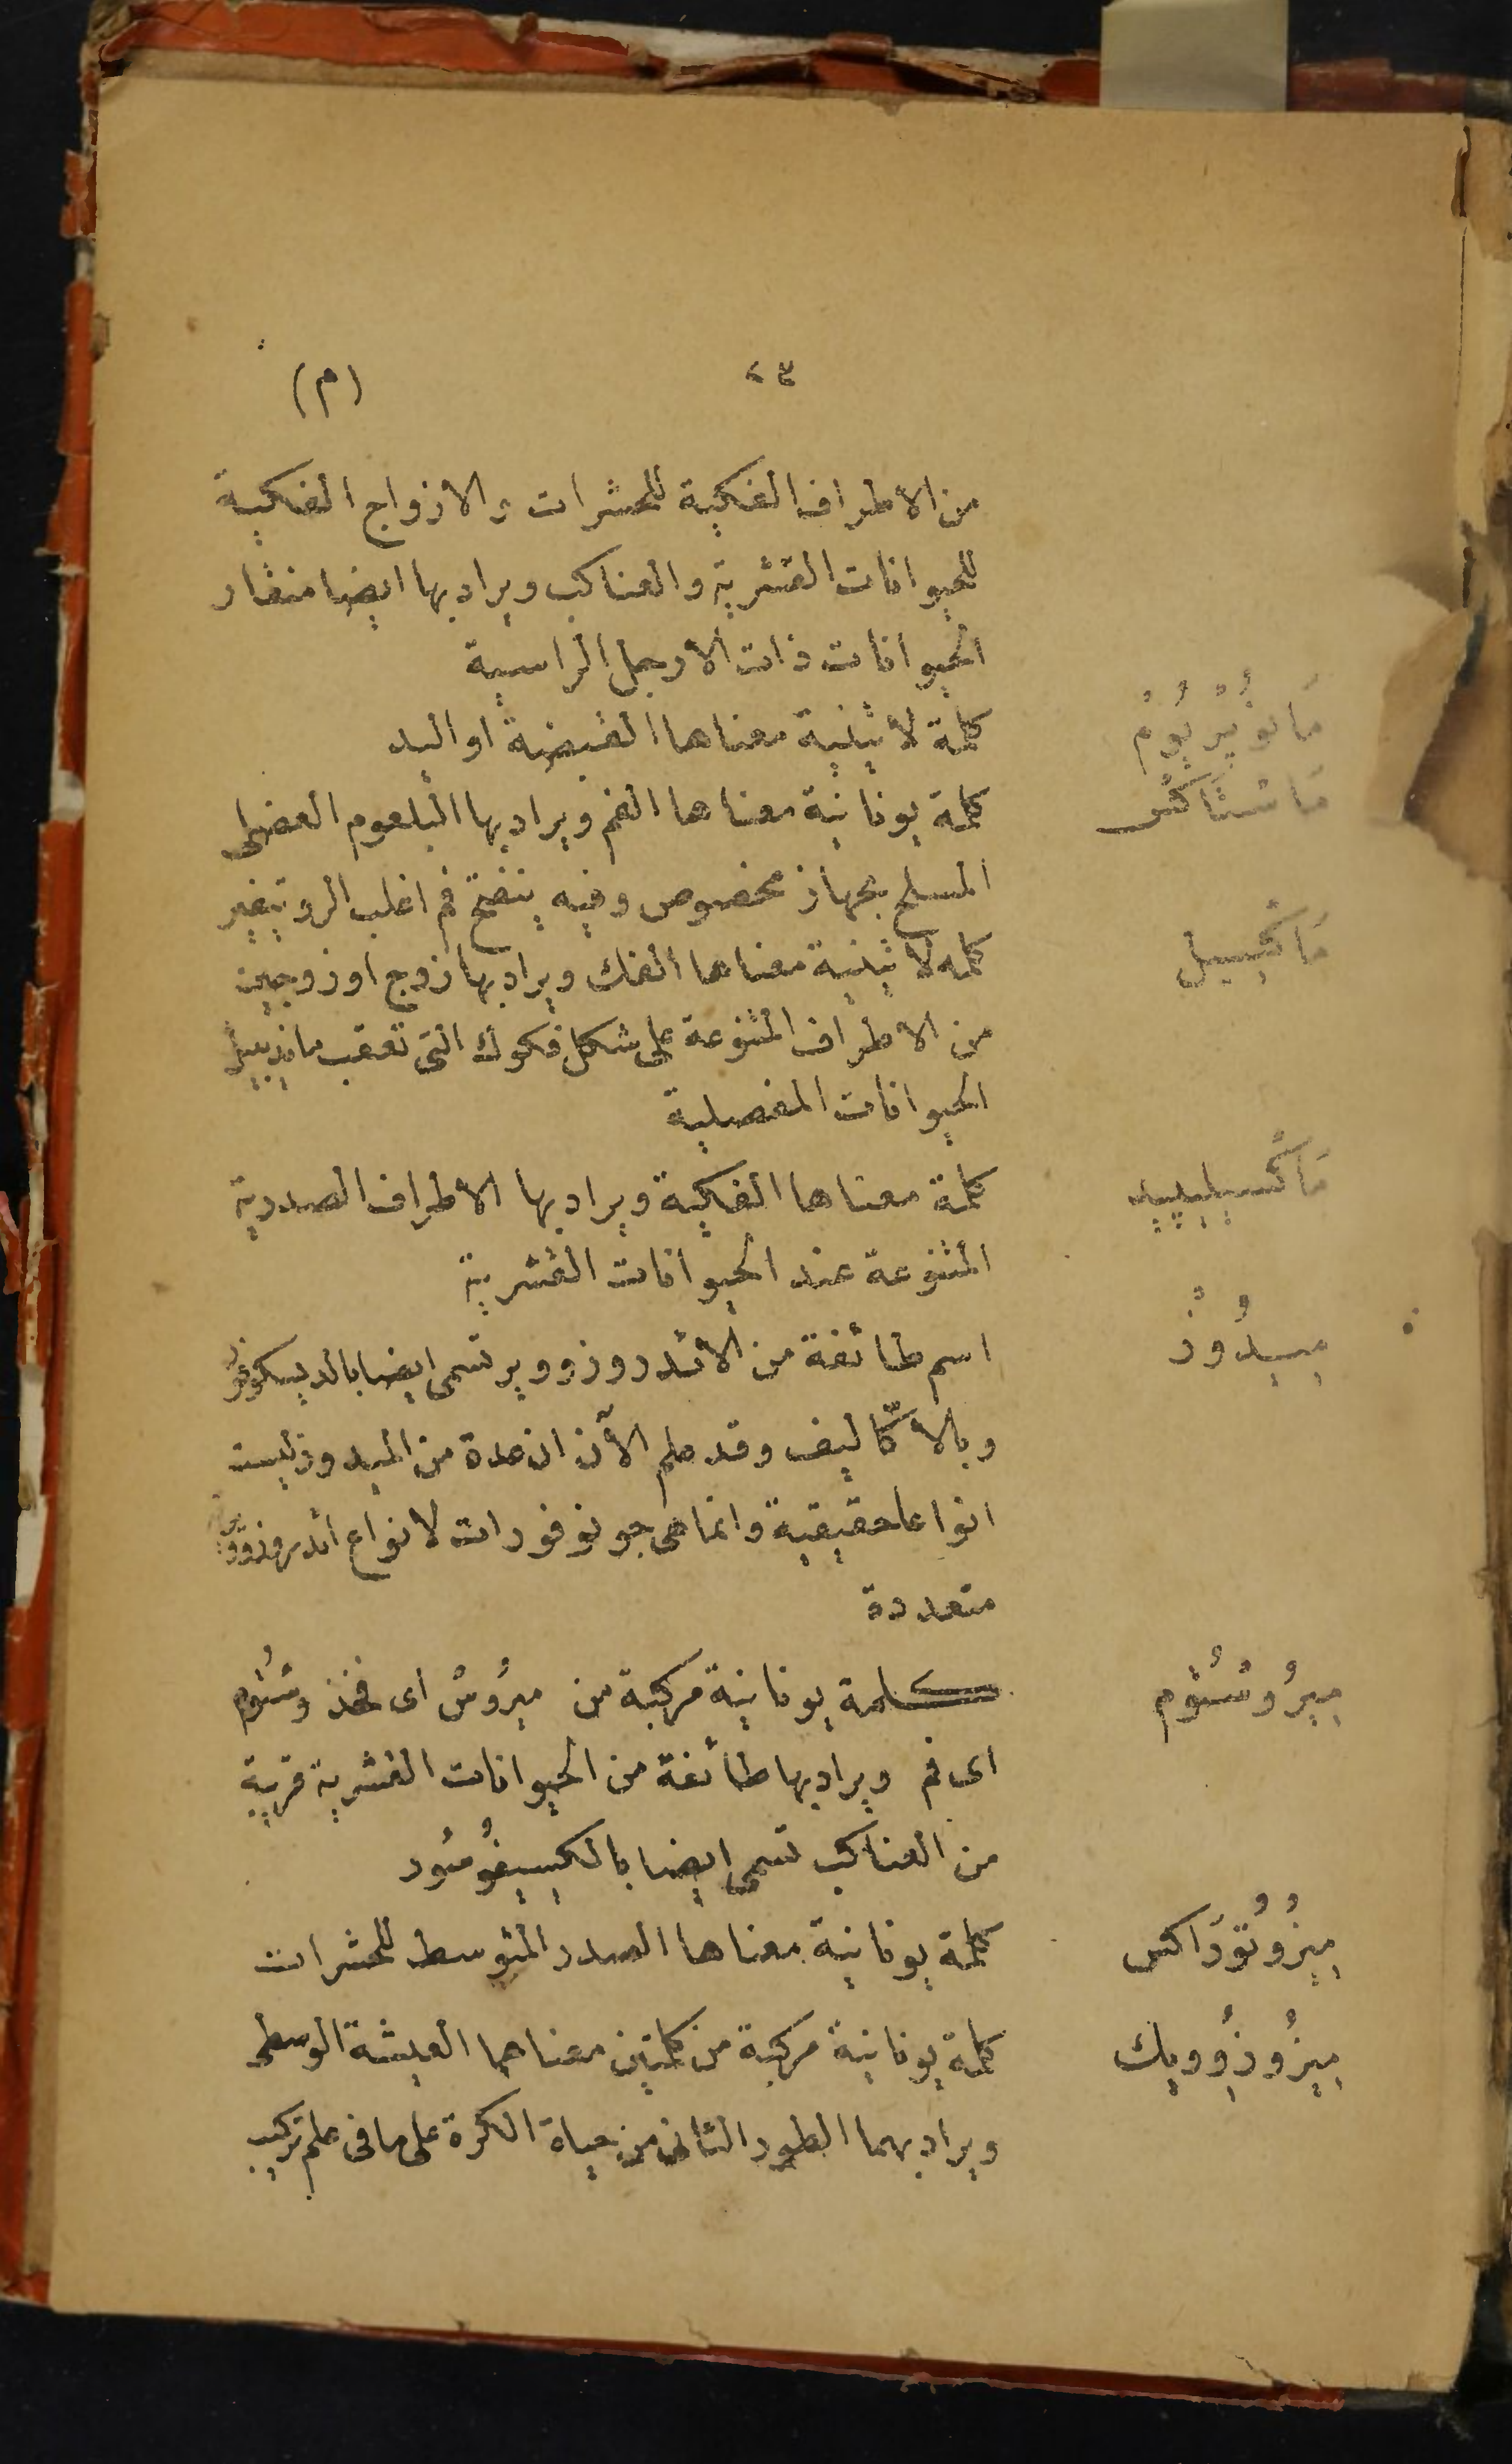 ٤٣ (م)
من الاطراف الفكية للحشرات والازواج الفكية
للحيوانات القشرية والعناكب ويراد بها ايضا منقار
الحيوانات ذات الارجل الراسية
مَانُوبْرِيُومْ كلمة لاتينية معناها القبضة او اليد
مَاسْتَاكْس كلمة يونانية معناها الفم ويراد بها البلعوم العضلى
المسلح بجهاز مخصوص وفيه ينفتح فم اغلب الروتيفير
مَاكْسِيل كلمه لاتينية معناها الفك ويراد بها زوج او زوجين
من الاطراف المتنوعة على شكل فكوك التى تعقب مانديبيل
الحيوانات المفصلية
مَاكْسِيلِيپيد كلمة معناها الفكية ويراد بها الاطراف الصدرية
المتنوعة عند الحيوانات القشرية
مِيدُوزْ اسم طائفة من الائدروزووير تسمى ايضا بالديسكوفور
وبالاكّاليف وقد علم الآن ان عدة من الميدوز ليست
انواعا حقيقية وانما هى جونوفورات لانواع ائدروزووير
متعددة
مِيرُوسْتُوم كلمة يونانية مركبة من مِيرُوسْ اى فخذ وسْتُوم
اى فم ويراد بها طائفة من الحيوانات القشرية قريبة
من العناكب تسمى ايضا بالكسيفُوسُور
مِيزُوتُورَاكس كلمة يونانية معناها الصدر المتوسط للحشرات
مِيزُوزُوويك كلمة يونانية مركبة من كلمتين معناهما العيشة الوسطى
ويراد بهما الطور الثانى من حياة الكرة على ما فى علم تركيب